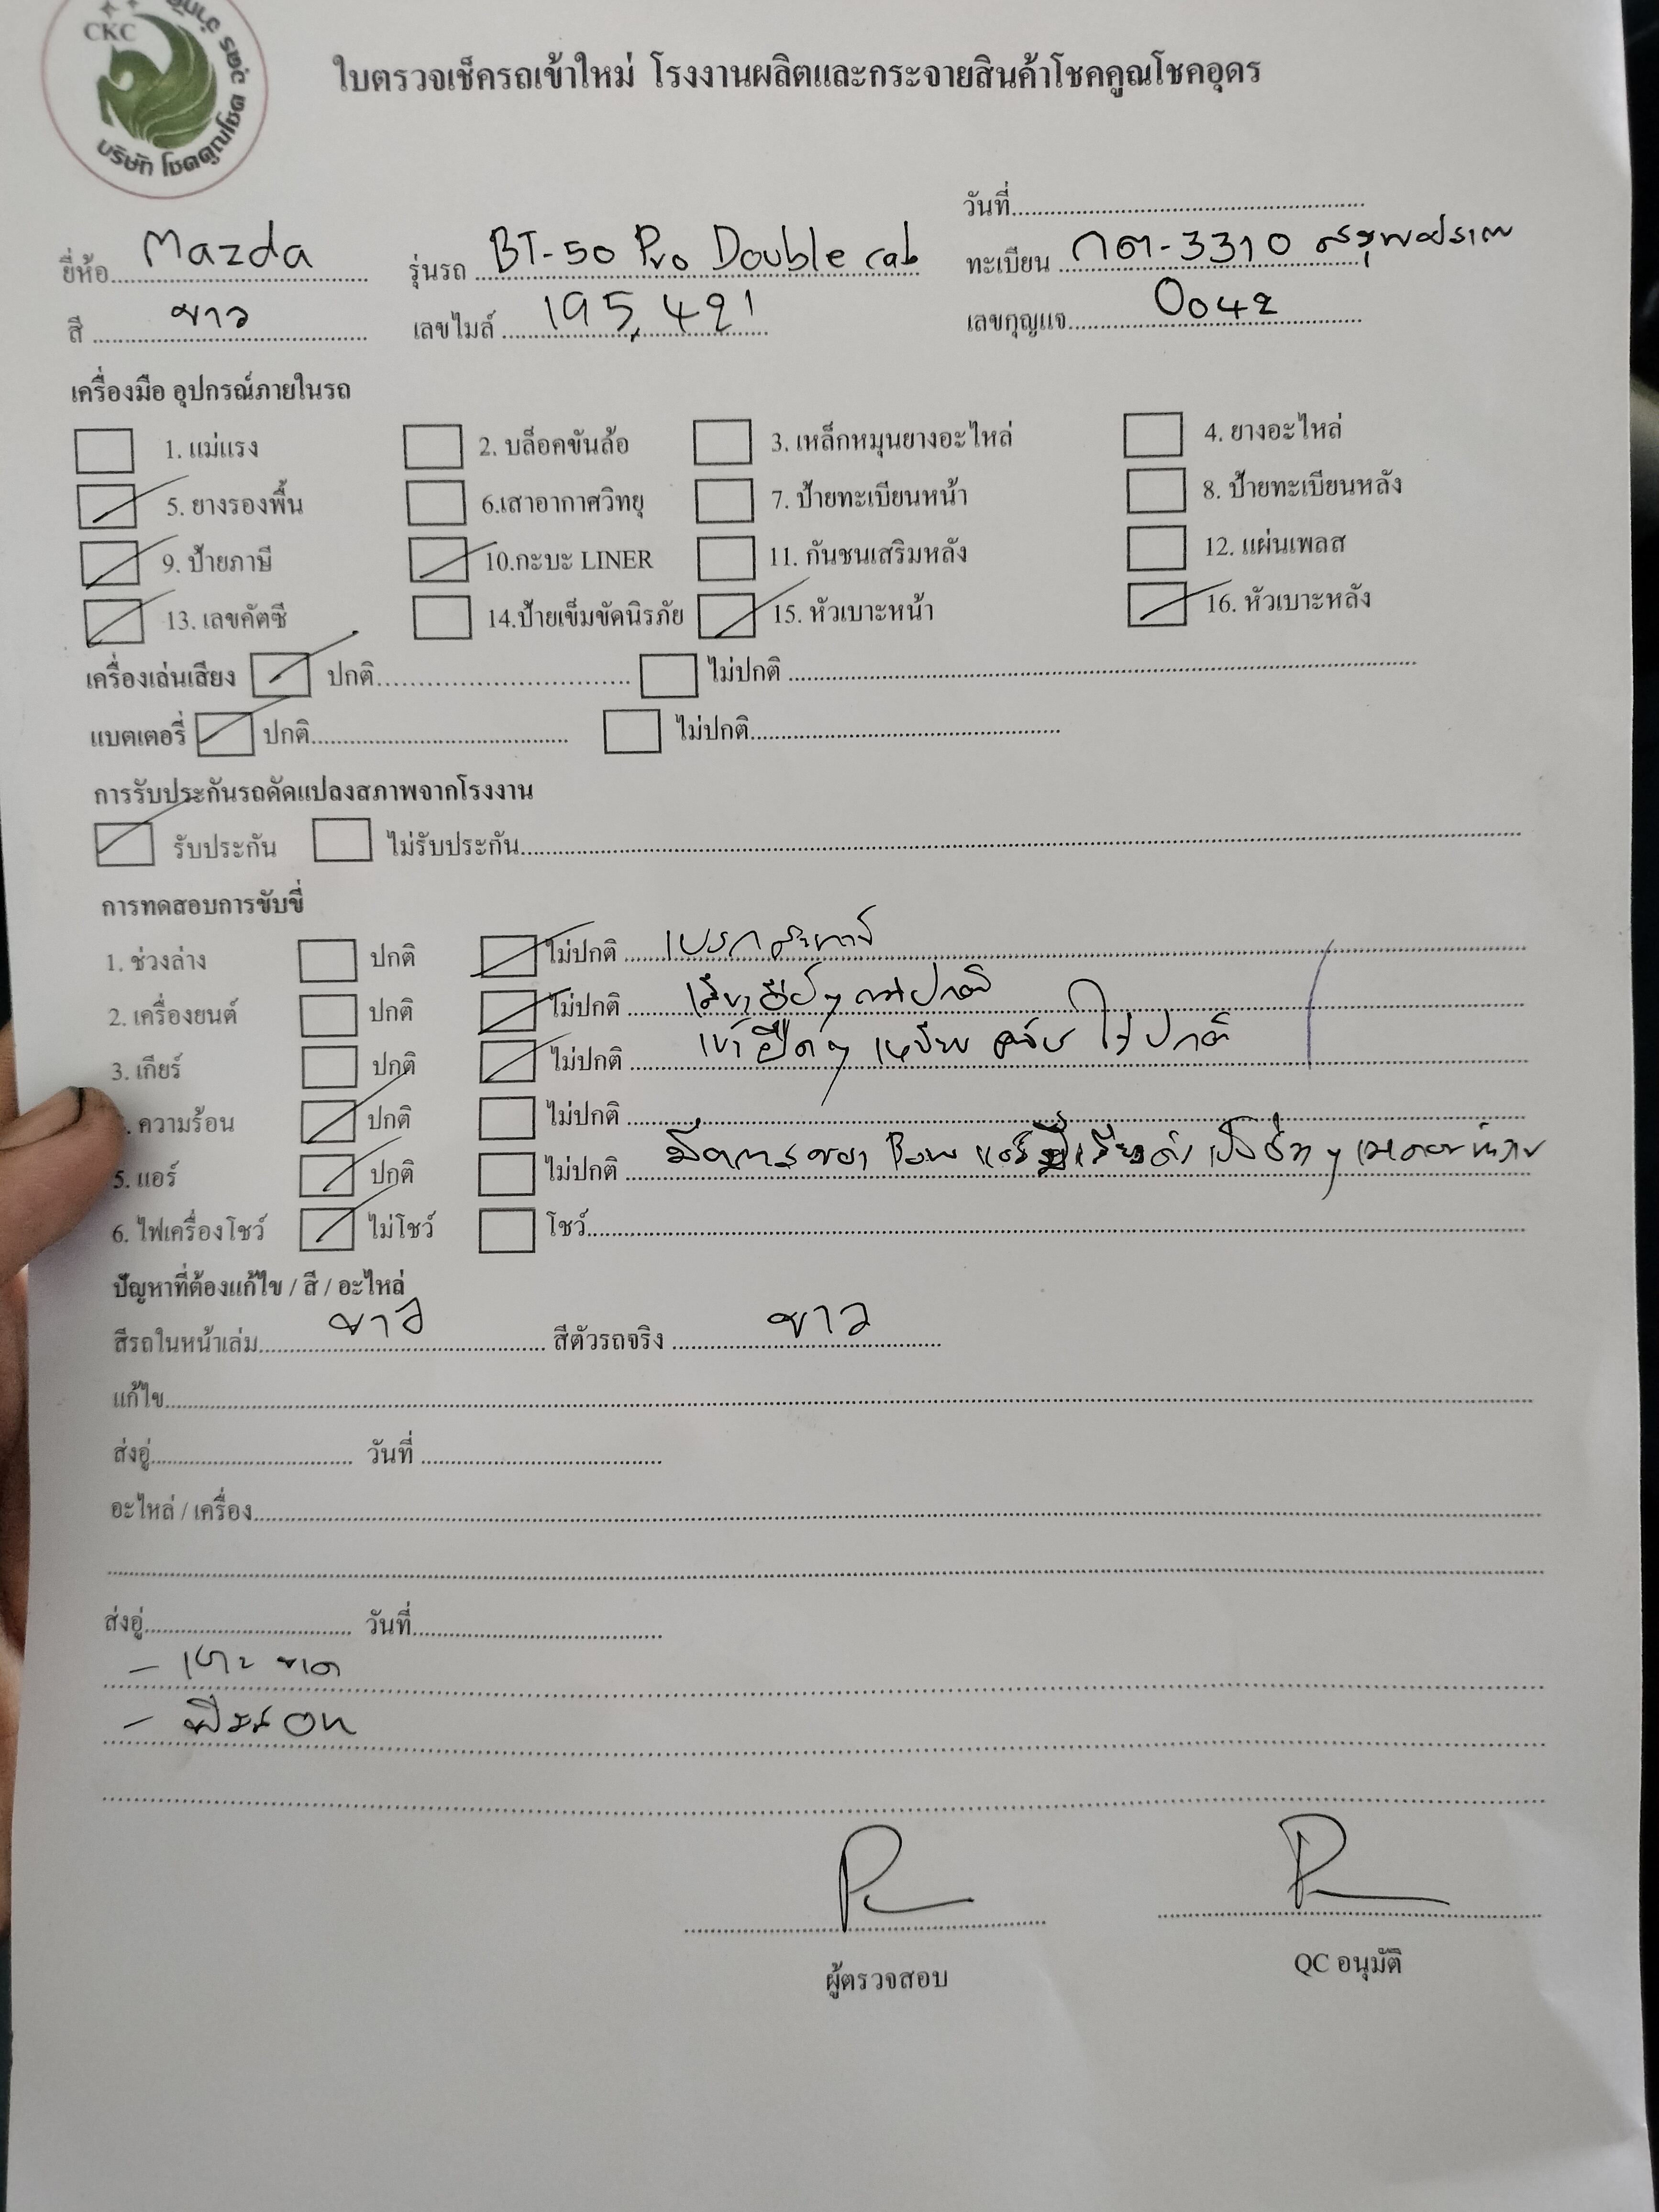 CKC
บริษัท โชคคูณโชค
ใบตรวจเช็ครถเข้าใหม่ โรงงานผลิตและกระจายสินค้าโชคคูณโชคอุดร
วันที่
ยี่ห้อ Mazda รุ่นรถ BT-50 Pro Double cab ทะเบียน กต-3310
สี ขาว เลขไมล์ 195,421 เลขกุญแจ 0042
เครื่องมือ อุปกรณ์ภายในรถ
1. แม่แรง 2. บล็อคขันล้อ 3. เหล็กหมุนยางอะไหล่ 4. ยางอะไหล่
5. ยางรองพื้น 6.เสาอากาศวิทยุ 7. ป้ายทะเบียนหน้า 8. ป้ายทะเบียนหลัง
9. ป้ายภาษี 10.กะบะ LINER 11. กันชนเสริมหลัง 12. แผ่นเพลส
13. เลขคัตซี 14.ป้ายเข็มขัดนิรภัย 15. หัวเบาะหน้า 16. หัวเบาะหลัง
เครื่องเล่นเสียง ปกติ ไม่ปกติ
แบตเตอรี่ ปกติ ไม่ปกติ
การรับประกันรถดัดแปลงสภาพจากโรงงาน
รับประกัน ไม่รับประกัน
การทดสอบการขับขี่
1. ช่วงล่าง ปกติ ไม่ปกติ เบรก
2. เครื่องยนต์ ปกติ ไม่ปกติ
3. เกียร์ ปกติ ไม่ปกติ เข้ายืดๆ เหยียบ ปกติ
ความร้อน ปกติ ไม่ปกติ
5. แอร์ ปกติ ไม่ปกติ
6. ไฟเครื่องโชว์ ไม่โชว์ โชว์
ปัญหาที่ต้องแก้ไข / สี / อะไหล่
สีรถในหน้าเล่ม ขาว สีตัวรถจริง ขาว
แก้ไข
ส่งอู่ วันที่
อะไหล่ / เครื่อง
ส่งอู่ วันที่
- เบาะ ขาด
ผู้ตรวจสอบ QC อนุมัติ